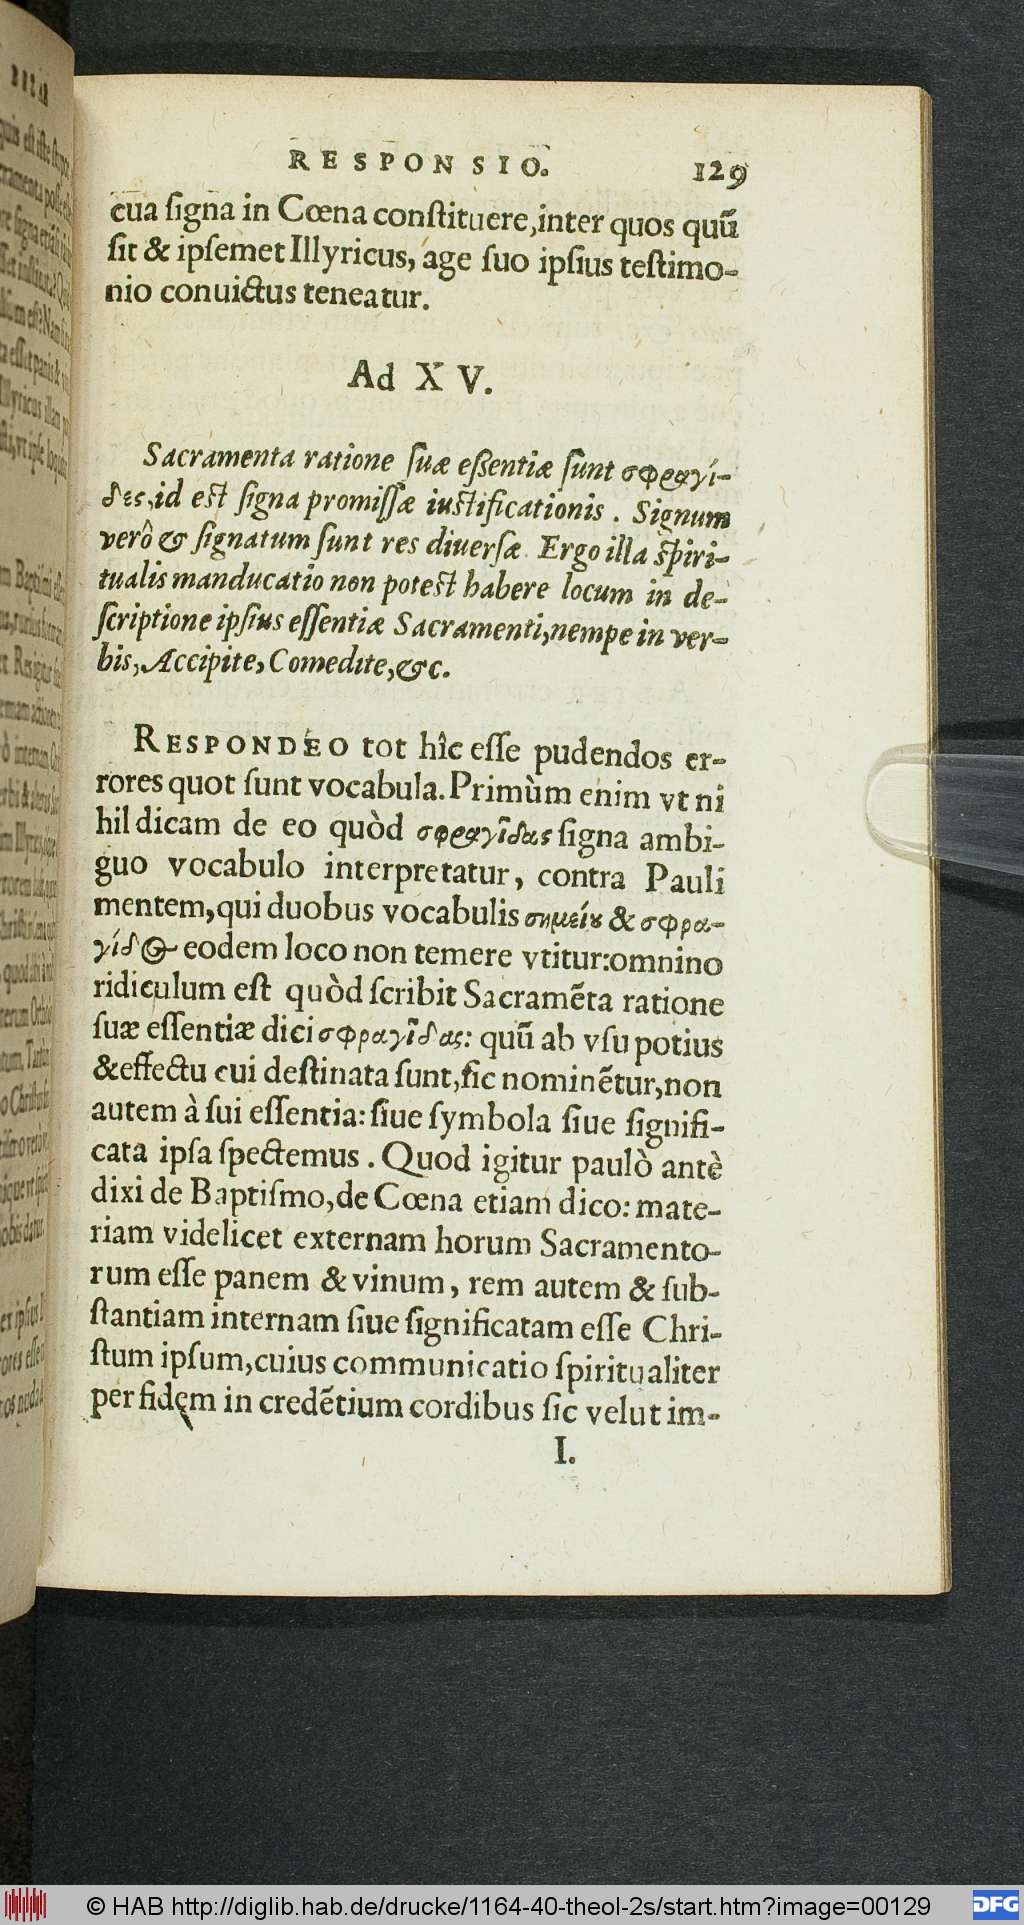 RESPONSIO. 129
cua ſigna in Cœna conſtituere,inter quos quũ
ſit & ipſemet Illyricus, age ſuo ipſius teſtimo-
nio conuictus teneatur.
Ad XV.
Sacramenta ratione ſuæ eßentiæ ſunt σφραγί-
δες,id est ſigna promiſſæ iustificationis. Signum
verò & ſignatum ſunt res diuerſæ. Ergo illa ſpiri-
tualis manducatio non potest habere locum in de-
ſcriptione ipſius eſſentiæ Sacramenti,nempe in ver-
bis, Accipite, Comedite, &c.
RESPONDEO tot hîc eſſe pudendos er-
rores quot ſunt vocabula. Primùm enim vt ni
hil dicam de eo quòd σφραγῖδας ſigna ambi-
guo vocabulo interpretatur, contra Pauli
mentem,qui duobus vocabulis σημείȣ & σφρα-
γίδος eodem loco non temere vtitur:omnino
ridiculum eſt quòd ſcribit Sacramẽta ratione
ſuæ eſſentiæ dici σφραγῖδας: quũ ab vſu potius
& effectu cui deſtinata ſunt,ſic nominẽtur,non
autem à ſui eſſentia: ſiue ſymbola ſiue ſignifi-
cata ipſa ſpectemus. Quod igitur paulò antè
dixi de Baptiſmo,de Cœna etiam dico: mate-
riam videlicet externam horum Sacramento-
rum eſſe panem & vinum, rem autem & ſub-
ſtantiam internam ſiue ſignificatam eſſe Chri-
ſtum ipſum,cuius communicatio ſpiritualiter
per fidem in credẽtium cordibus ſic velut im-
I.
© HAB http://diglib.hab.de/drucke/1164-40-theol-2s/start.htm?image=00129
DFG